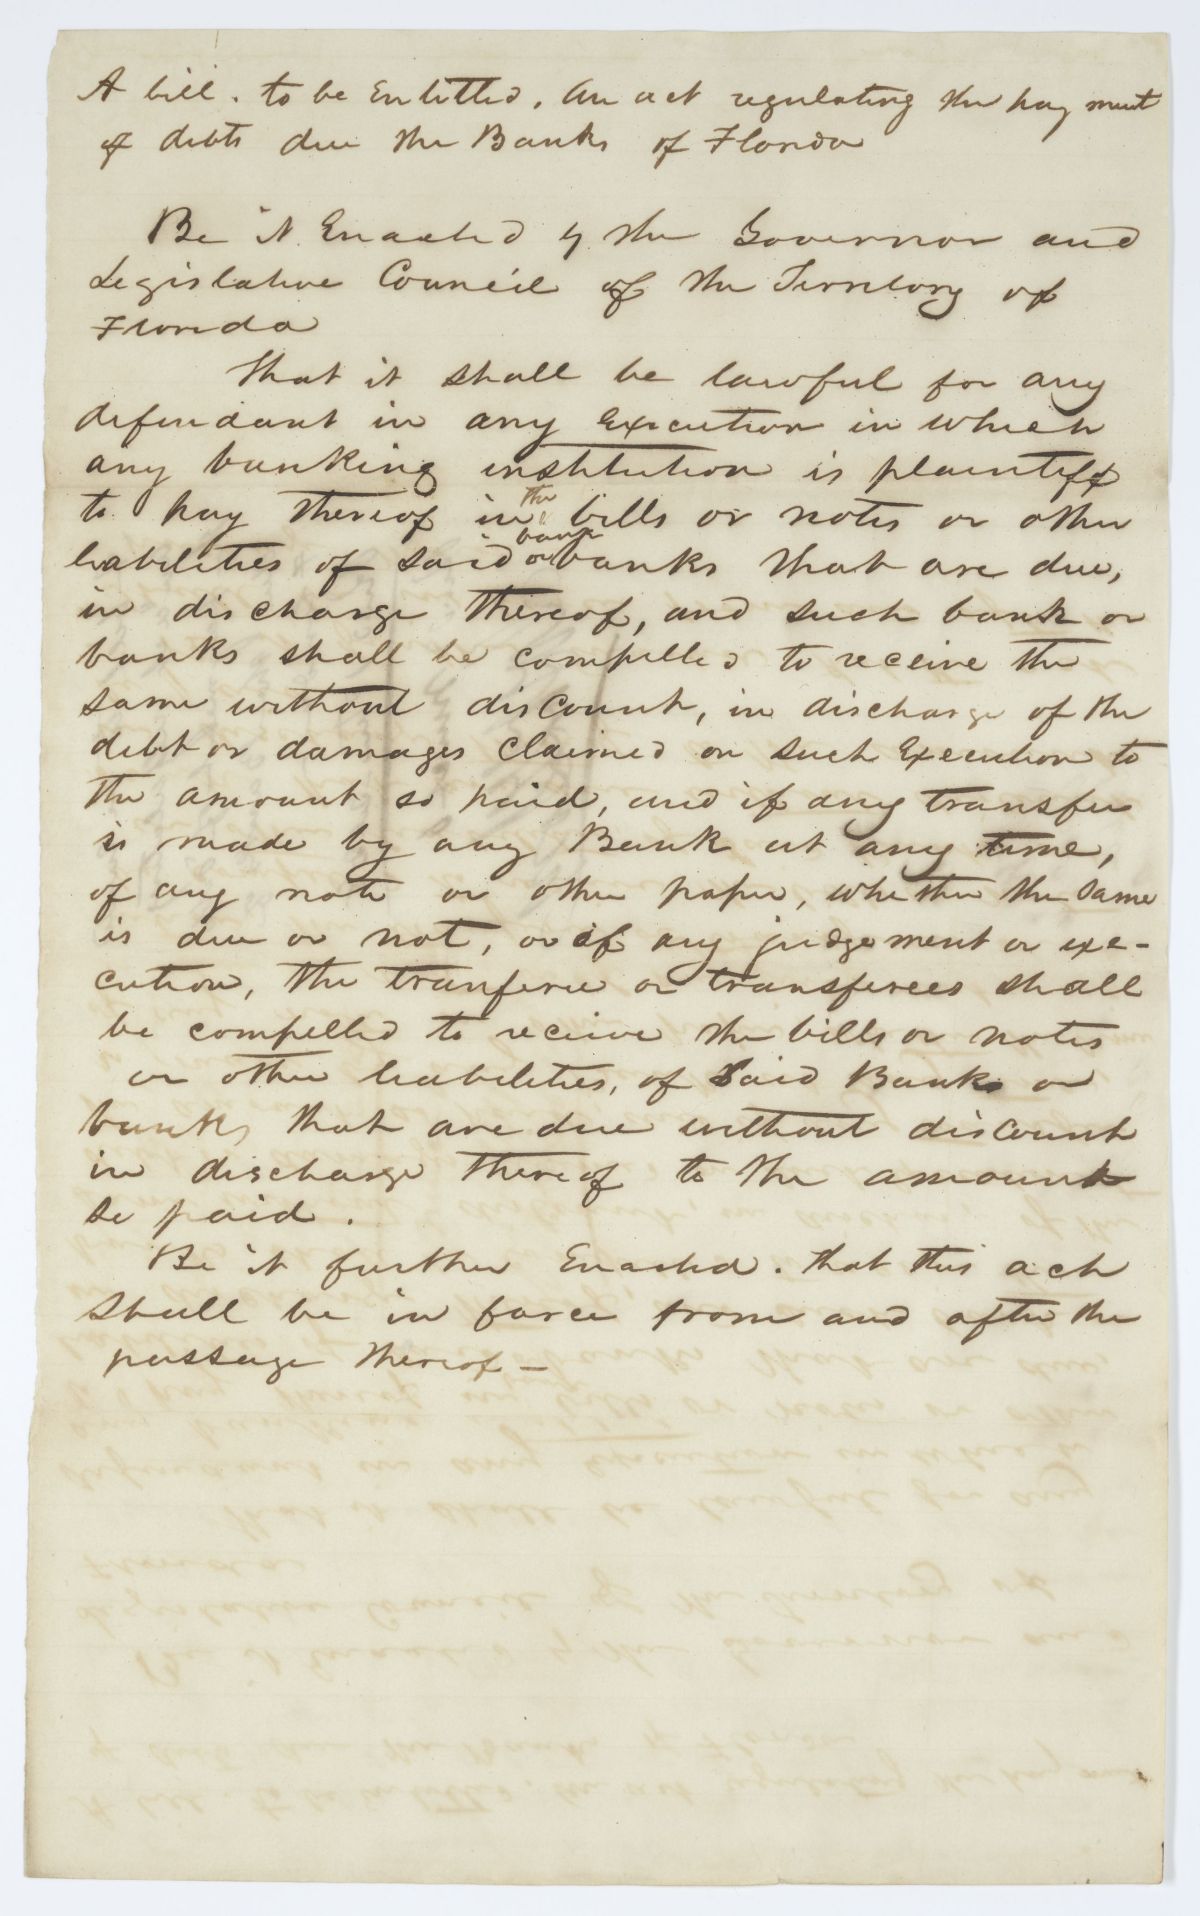 A bill. to be Entitled. An act regulating the payment
of debts due the Banks of Florida
Be it Enacted by the Governor and
Legislative Council of the Territory of
Florida
That it shall be lawful for any
defendant in any Execution in which
any banking institution is plaintiff
to pay thereof in the bills or notes or other
liabilities of said bank or banks that are due,
in discharge thereof, and such bank or
banks shall be compelled to receive the
same without discount, in discharge of the
debt or damages Claimed on such Execution to
the amount so paid, and if any transfer
is made by any Bank at any time,
of any note or other paper, whether the same
is due or not, or of any judgement or exe-
cution, the tranferee or transferees shall
be compelled to receive the bills or notes
or other liabilities, of said Bank or
banks that are due without discount
in discharge thereof to the amount
so paid.
Be it further Enacted. that this act
shall be in force from and after the
passage thereof -